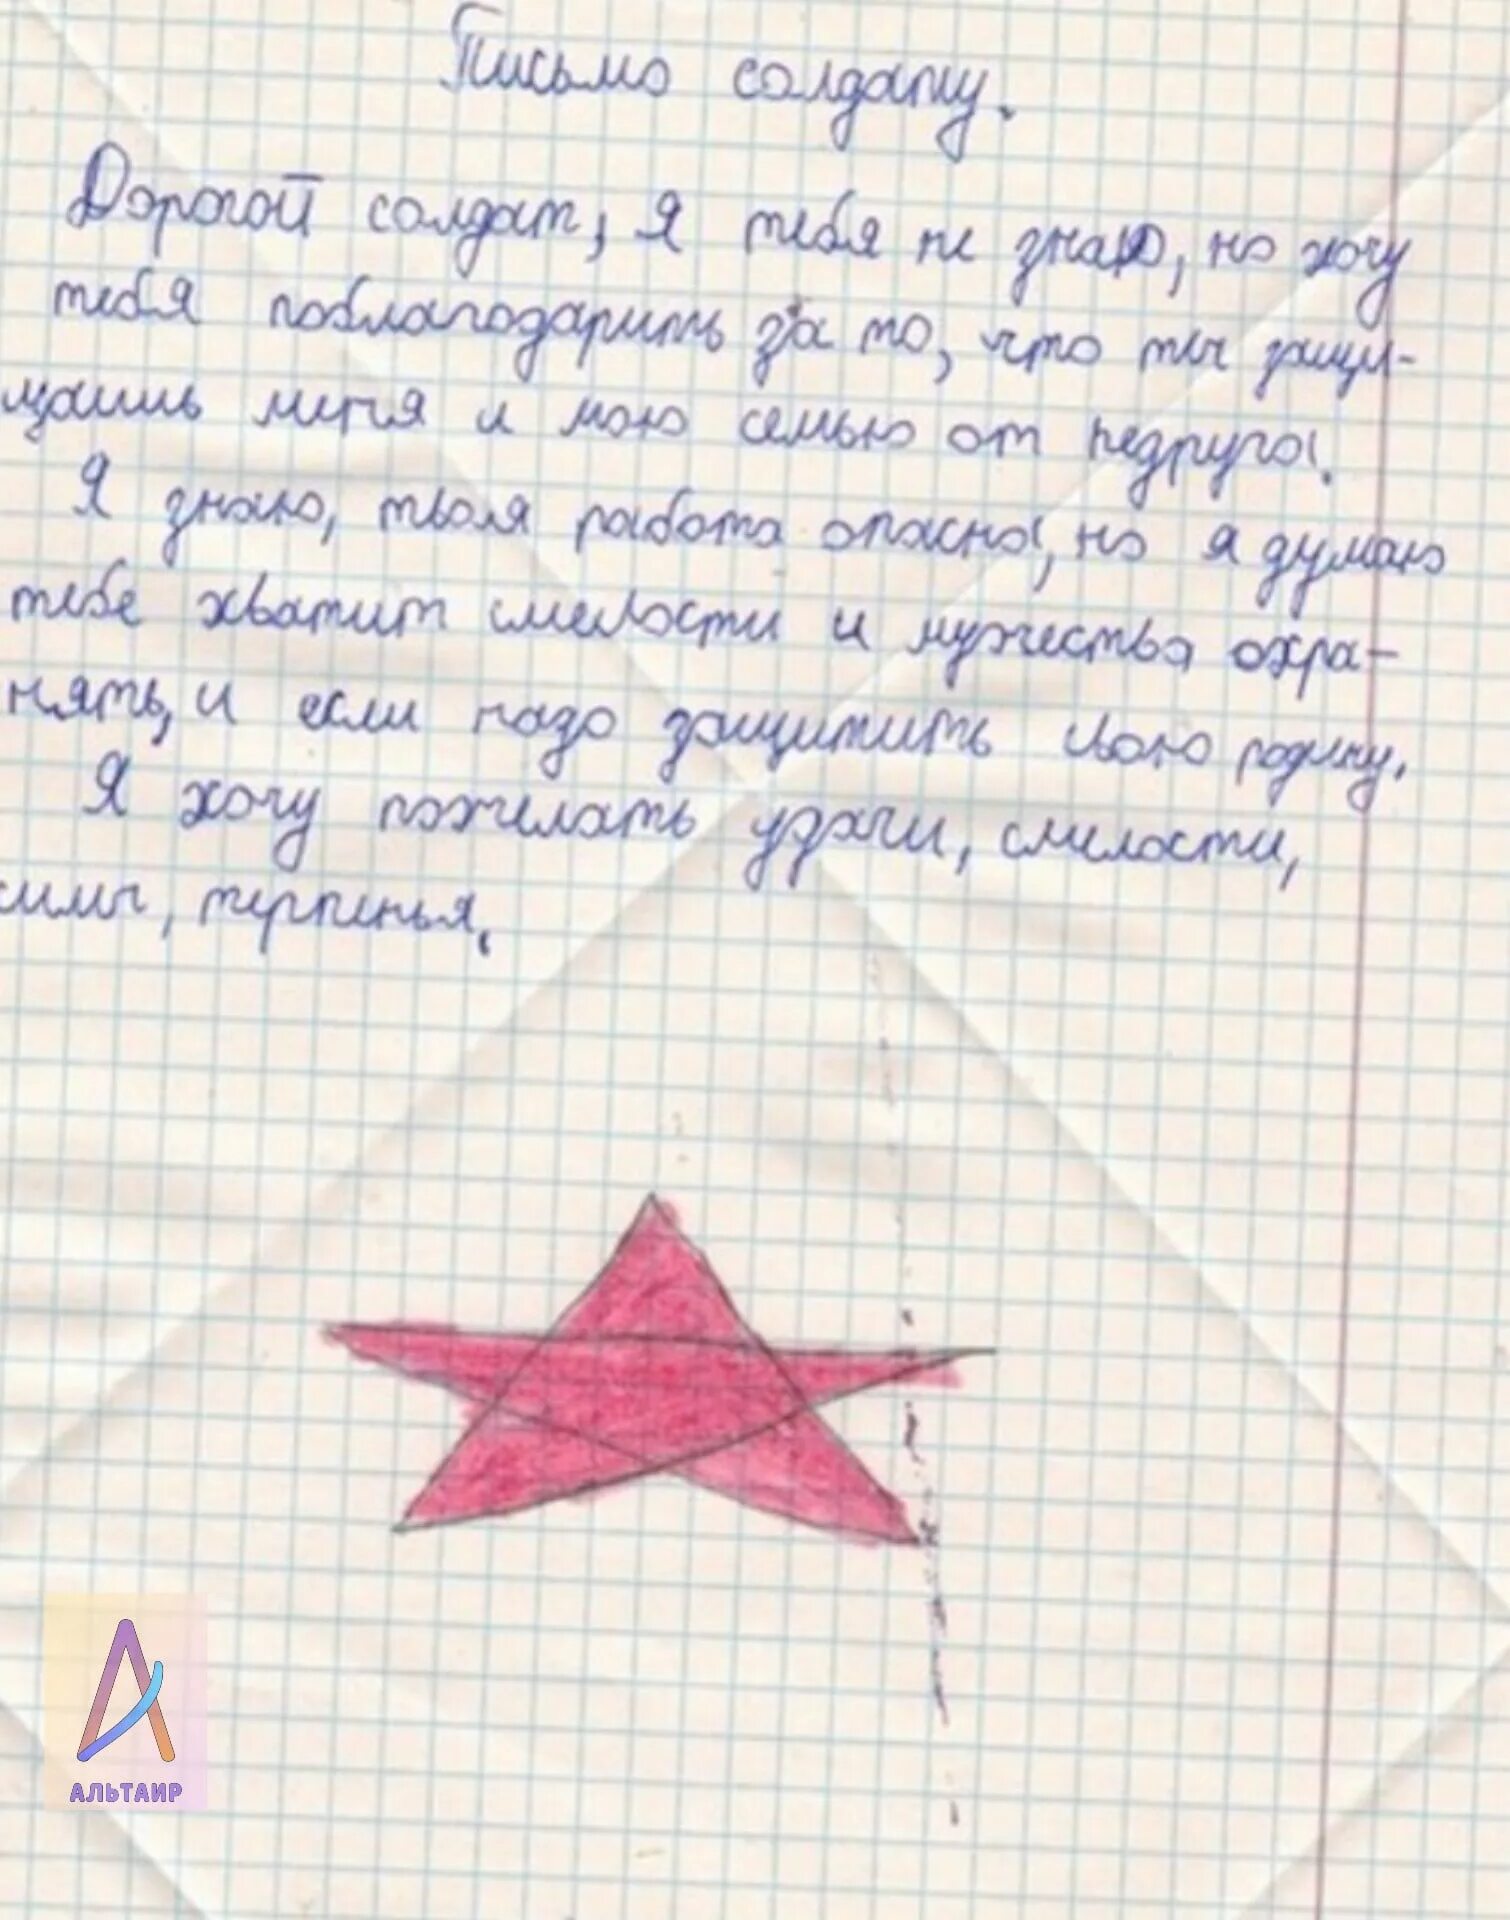 Письмо солдату.
Дорогой солдат, Я тебя не знаю, но хочу
тебя поблагодарить за то, что ты защи-
щаишь меня и мою семью от недруга.
Я знаю, твоя работа опасна, но я думаю
тебе хватит смелости и мужества охра-
нять, и если надо защитить свою родину.
Я хочу пожелать удачи, смелости,
силы, терпенья.
АЛЬТАИР